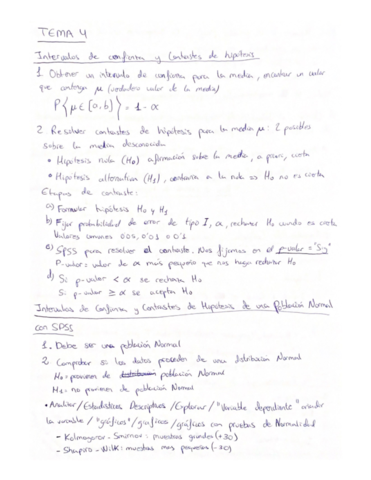 TEMA 4
Intervalos de confianza y Contrastes de hipótesis
1. Obtener un intervalo de confianza para la media, encontrar un valor
que contenga μ (verdadero valor de la media)
P{μ∈[a,b]} = 1-α
2 Resolver contrastes de hipótesis para la media μ: 2 posibles
sobre la media desconocida
• Hipótesis nula (H₀) afirmación sobre la media, a priori, cierta
• Hipótesis alternativa (H₁), contraria a la nula => H₀ no es cierta
Etapas de contraste:
a) Formular hipótesis H₀ y H₁
b) Fijar probabilidad de error de tipo I, α, rechazar H₀ cuando es cierta
Valores comunes 0'05, 0'01 o 0'1
c) SPSS para resolver el contraste. Nos fijamos en el p-valor = "Sig"
P-valor = valor de α más pequeño que nos haga rechazar H₀
d) Si p-valor < α se rechaza H₀
Si p-valor ≥ α se acepta H₀
Intervalos de Confianza y Contrastes de Hipótesis de una Población Normal
con SPSS
1. Debe ser una población Normal
2 Comprobar si los datos proceden de una distribución Normal
H₀ = provienen de población Normal
H₁ = no provienen de población Normal
• Analizar/Estadísticos Descriptivos/Explorar/"Variable dependiente"
la variable/"gráficos"/gráficos/gráficos con pruebas de Normalidad
- Kolmogorov-Smirnov: muestras grandes (+30)
- Shapiro-Wilk: muestras más pequeñas (-30)